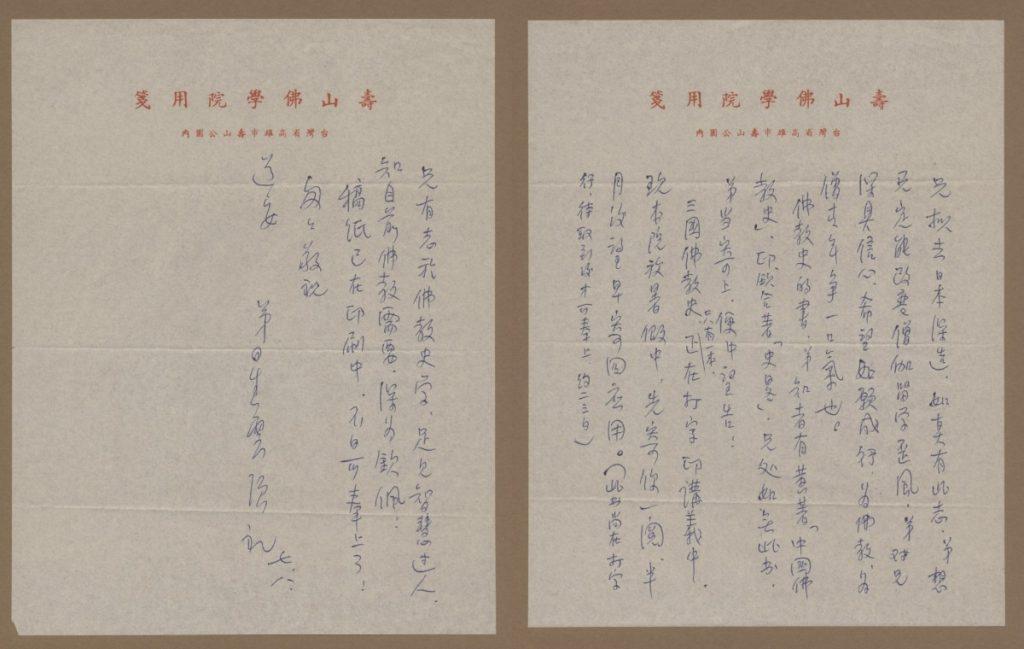 壽山佛學院用箋
台灣省高雄市壽山公園內
兄擬去日本深造，如真有此志，弟想
兄定能改變僧伽留學歪風，弟对兄
深具信心，希望如願成行，为佛教、为
僧青年爭一口氣也。
佛教史的書，弟知者有黃著「中國佛
教史」，印順合著「史畧」，兄处如無此书，
弟當寄上，便中望告！
三國佛教史只有一本，正在打字印講義中，
現本院放暑假中，先寄你一閱，半
月後望早寄回应用。（此书尚在打字
行，待取到後才可奉上約二三日）
壽山佛學院用箋
台灣省高雄市壽山公園內
兄有志於佛教史学，足見智慧过人，
知目前佛教需要，深为欽佩！
稿紙已在印刷中，不日可奉上了！
匆匆敬祝
道安
弟星雲頂礼 七、八、